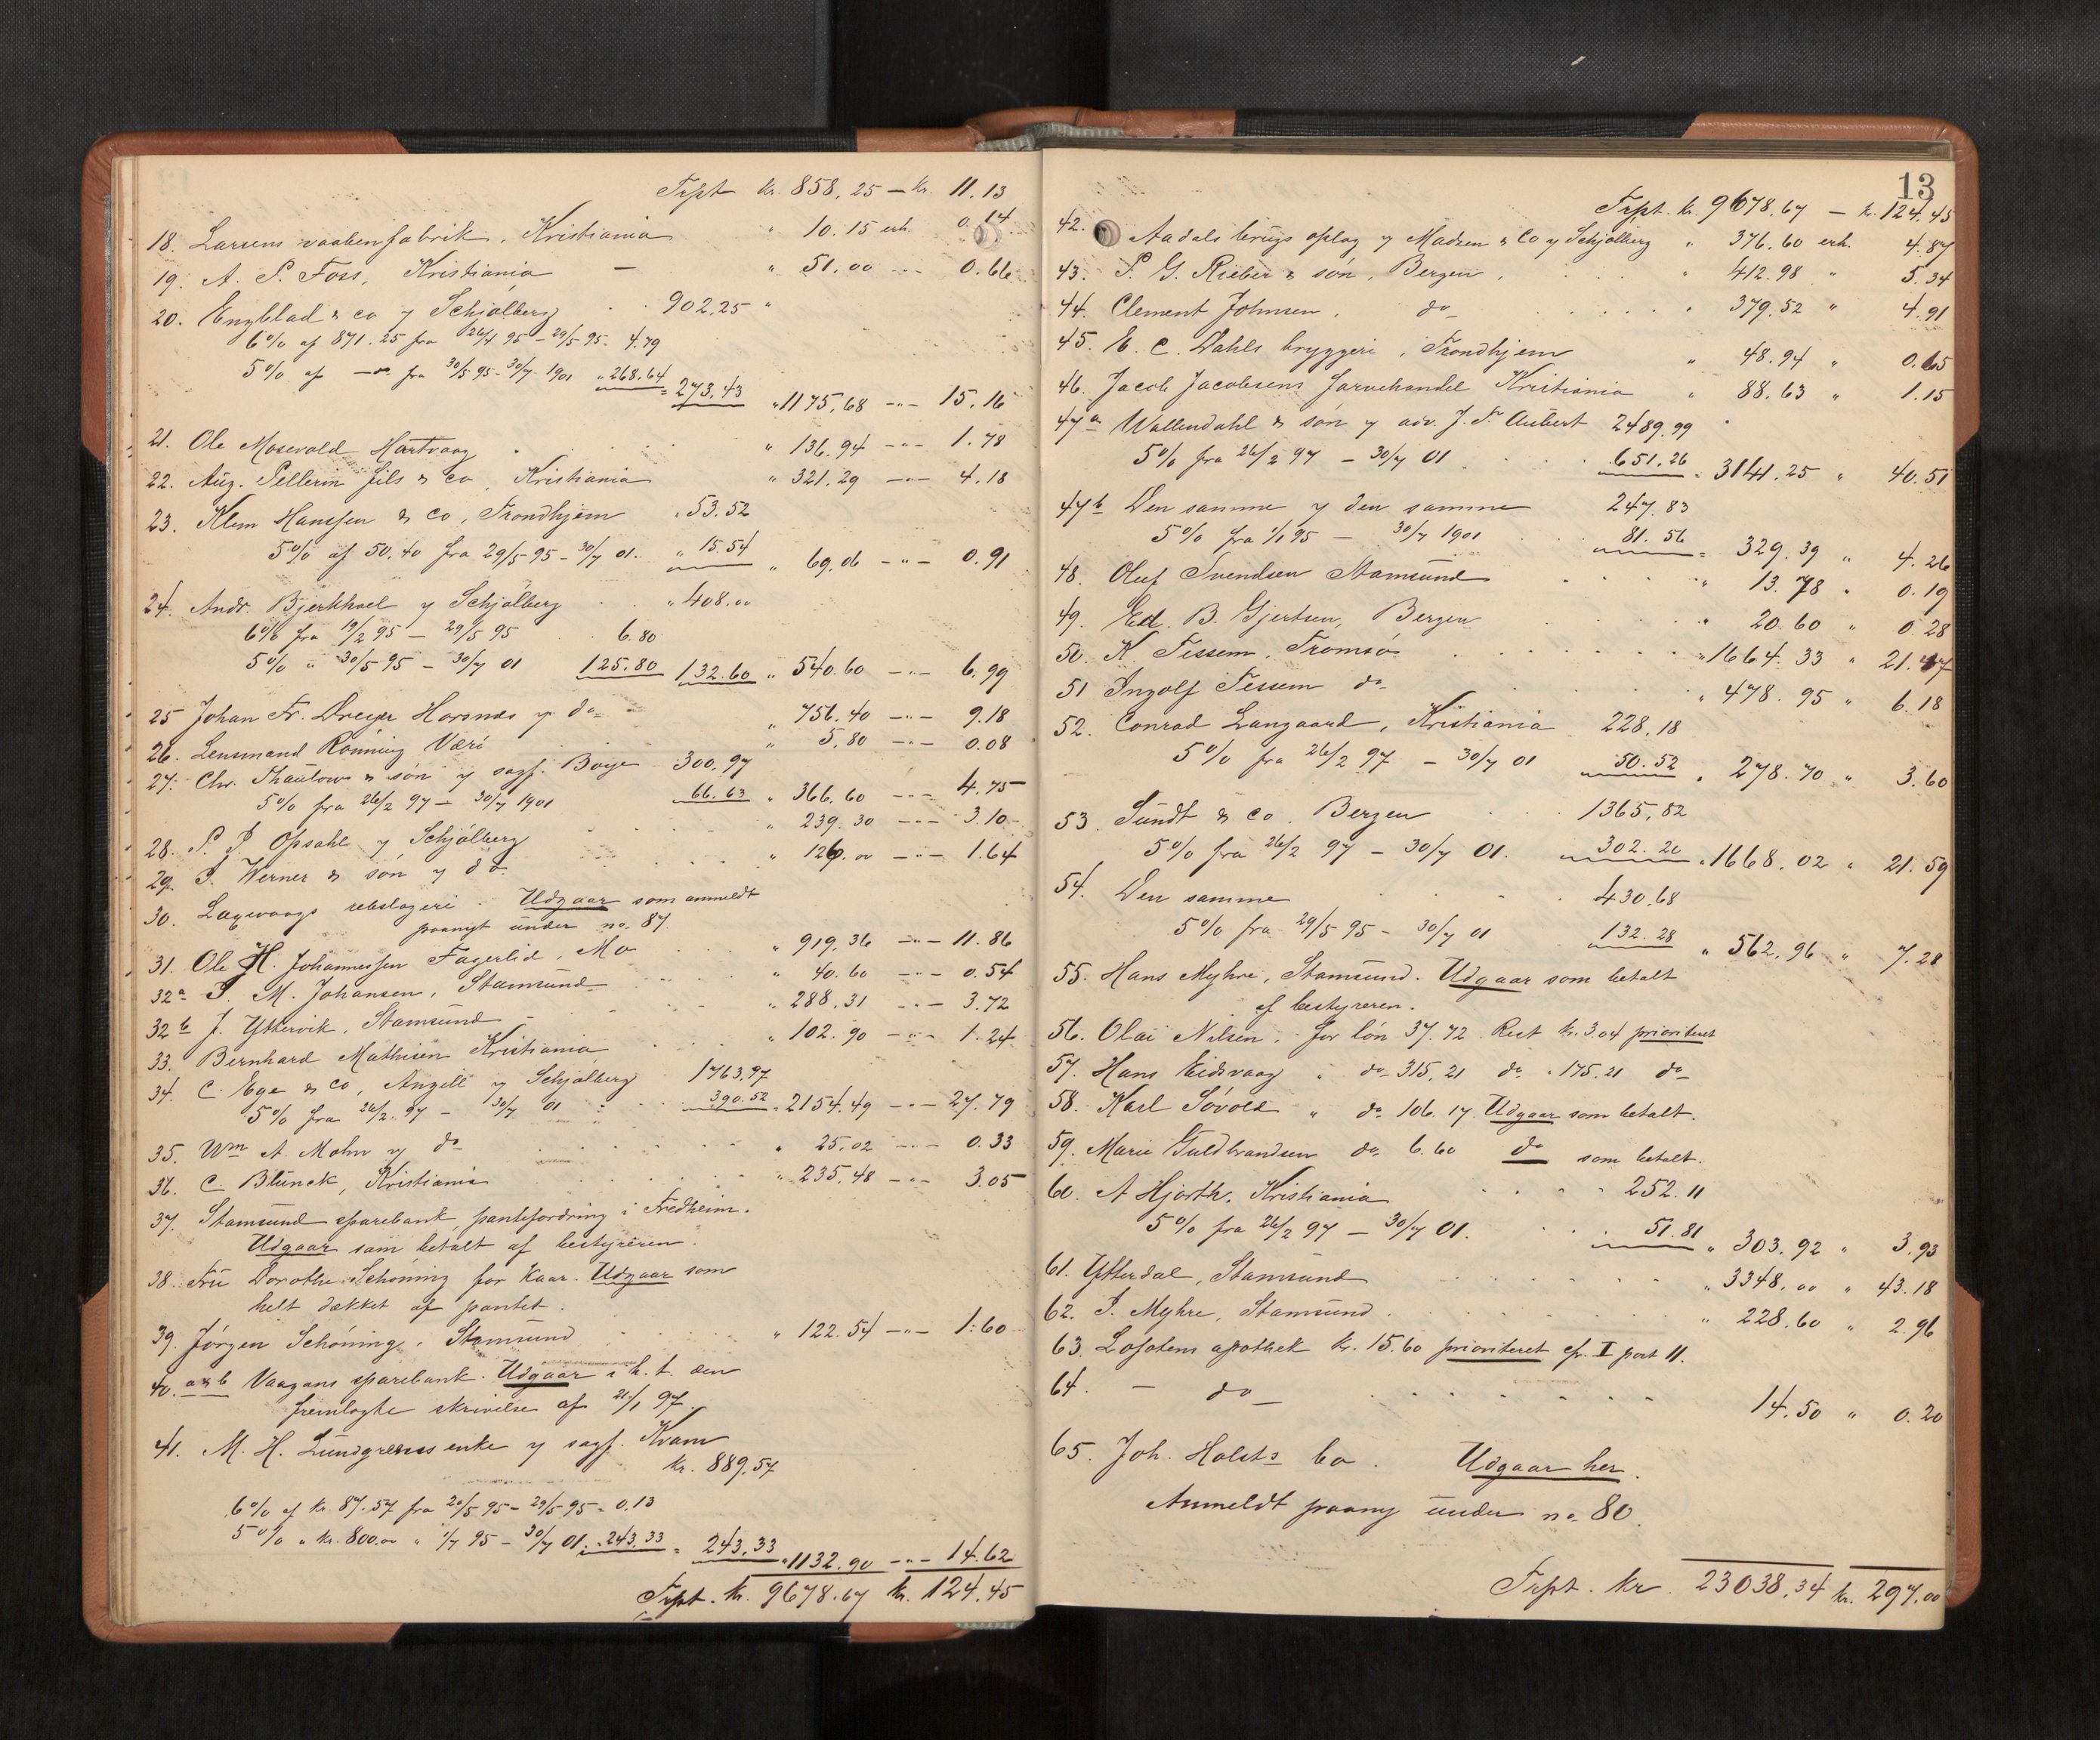 Trpt kr. 858,25 — kr. 11.13
18. Larsens vaabenfabrik, Kristiania " 10.15 erh. 0.14
19. A. P. Foss, Kristiania — " 51.00 -"- 0.66
20. Engblad & co y Schjølberg 902.25 "
6% af 871.25 fra 26/4 95 - 29/5 95. 4.79
5% af — fra 30/5 95 - 30/7 1901 " 268.64 = 273.43 " 1175,68 -"- 15.16
21. Ole Mosevold Hartvaag " 136.94 -"- 1.78
22. Aug. Pellerin fils & co, Kristiania " 321.29 -"- 4.18
23. Klem Hanssen & co, Trondhjem " 53.52
5% af 50.40 fra 29/5 95 - 30/7 01. " 15.54 " 69.06 -"- 0.91
24. Andr. Bjerkhoel y Schjølberg " 408.00
6% fra 19/2 95 - 29/5 95 6.80
5% " 30/5 95 - 30/7 01 125.80 132.60 " 540.60 -"- 6.99
25 Johan Fr. Dreyer Horsnæs y do " 756.40 -"- 9.18
26. Lensmand Rønning Værø " 5.80 -"- 0.08
27. Chr. Thaulow & søn y sagf. Boye 300.97
5% fra 26/2 97 - 30/7 1901 66.63 " 366.60 -"- 4.75
28. P. P. Opsahl y Schjølberg " 239.30 -"- 3.10
29. P. Werner & søn y do " 126.00 -"- 1.64
30. Laxevaags rebslageri. Udgaar som anmeldt
paanyt under no. 87
31. Ole H. Johannessen Fagerlid, Mo " 919.36 -"- 11.86
32a P. M. Johansen, Stamsund " 40.60 -"- 0.54
32b J. Yttervik, Stamsund " 288.31 -"- 3.72
33. Bernhard Mathisen Kristiania " 102.90 -"- 1.24
34. C. Ege & co, Angell y Schjølberg 1763.97
5% fra 26/2 97 - 30/7 01 390.52 " 2154.49 -"- 27.79
35. Wm A. Mohn y do " 25.02 -"- 0.33
36. C. Blunck, Kristiania " 235.48 -"- 3.05
37. Stamsund sparebank, pantefordring i Fredheim.
Udgaar som betalt af bestyreren.
38. Fru Dorothe Schøning for Kaar. Udgaar som
helt dækket af pantet.
39. Jørgen Schøning, Stamsund " 122.54 -"- 1.60
40. a & b Vaagans sparebank. Udgaar i h. t. den
fremlagte skrivelse af 21/1 97.
41. M. H. Lundgreens enke y sagf. Kvam
kr. 889,57
6% af kr. 87.57 fra 20/5 95 - 29/5 95 = 0.13
5% " kr. 800.00 " 1/7 95 - 30/7 01. " 243.33 = 243.33 " 1132.90 -"- 14.62
Trpt. kr. 9678.67 kr. 124.45
13
Trpt. kr. 9678.67 — kr. 124.45
42. Aadals brugs oplag y Madsen & Co y Schjølberg " 376.60 erh. 4.87
43. P. G. Rieber & søn, Bergen " 412.98 " 5.34
44. Clement Johnsen, do " 379.52 " 4.91
45. E. C. Dahls bryggeri, Trondhjem " 48.94 " 0.65
46. Jacob Jacobsens farvehandel Kristiania " 88.63 " 1.15
47a Wallendahl & søn y adv. J. F. Aubert 2489.99
5% fra 26/2 97 - 30/7 01 651.26 " 3141.25 " 40.51
47b Den samme y den samme 247.83
5% fra 1/1 95 - 30/7 1901 81.56 = 329.39 " 4.26
48. Oluf Svendsen Stamsund " 13.78 " 0.19
49. Ed. B. Gjertsen, Bergen " 20.60 " 0.28
50. K Tessem, Tromsø " 1664.33 " 21.47
51 Ingolf Tessem do " 478.95 " 6.18
52. Conrad Langaard, Kristiania 228.18
5% fra 26/2 97 - 30/7 01 50.52 " 278.70 " 3.60
53. Sundt & co. Bergen 1365,82
5% fra 26/2 97 - 30/7 01. 302.20 " 1668.02 " 21.59
54. Den samme 430.68
5% fra 29/5 95 - 30/7 01 132.28 " 562.96 " 7.28
55. Hans Myhre, Stamsund. Udgaar som betalt
af bestyreren.
56. Olai Nilsen, for løn 37.72 Rest kr. 3.04 prioritert
57. Hans Eidsvaag " do 315,21 do " 175.21 do
58. Karl Søvold " do 106.17. Udgaar som betalt.
59. Marie Guldbrandsen do 6.60 do som betalt.
60. A Hjorth, Kristiania 252.11
5% fra 26/2 97 - 30/7 01. 51.81 " 303.92 " 3.93
61. Ytterdal, Stamsund " 3348.00 " 43.18
62. P. Myhre, Stamsund. " 228.60 " 2.96
63. Lofotens apothek kr. 15.60 prioriteret cfr. I post 11.
64. — do 14.50 " 0.20
65. Joh. Holsts bo. Udgaar her.
Anmeldt paany under no 80.
Trpt. kr. 23038,34 kr. 297.00